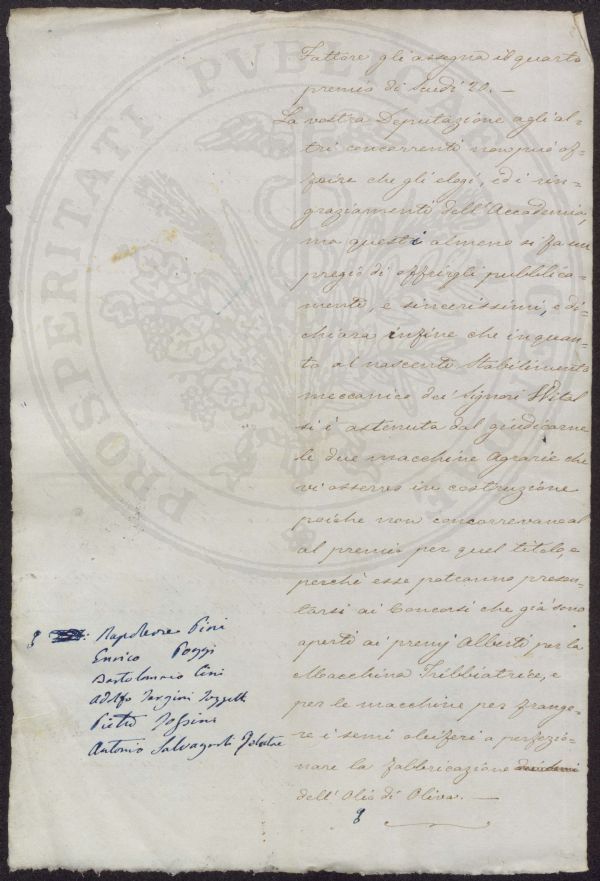 Fattore gli assegna il quarto
premio di Scudi 20. —
La vostra Deputazione agli al=
tri concorrenti non può of=
frire che gli elogi, ed i rin=
graziamenti dell'Accademia,
ma questi almeno si fa un
pregio di offrirgli pubblica=
menti, e sincerissimi, e di=
chiara infine che in quan=
to al nascente Stabilimento
meccanico dei Signori Wital
si è astenuta dal giudicarne
le due macchine Agrarie che
vi osservò in costruzione
poichè non concorrevano
al premio per quel titolo, e
perchè esse potranno presen=
tarsi ai Concorsi che già sono
aperti ai premj Alberti per la
Macchina Tribbiatrice, e
per le macchine per frange=
re i semi oleiferi a perfezio=
nare la fabbricazione
dell'Olio di Oliva. —
Napoleone Pini
Enrico Poggi
Bartolommeo Cini
Adolfo Targioni Tozzetti
Pietro
Antonio Salvagnoli Relatore
PROSPERITATI PUBLICAE AUGENDAE